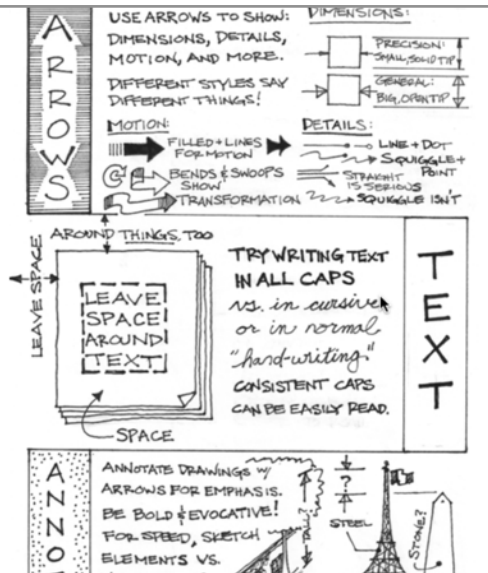 ARROWS
USE ARROWS TO SHOW:
DIMENSIONS, DETAILS,
MOTION, AND MORE.
DIFFERENT STYLES SAY
DIFFERENT THINGS!
DIMENSIONS:
PRECISION:
SMALL, SOLID TIP
GENERAL:
BIG, OPEN TIP
MOTION:
FILLED + LINES
FOR MOTION
BENDS & SWOOPS
SHOW
TRANSFORMATION
DETAILS:
LINE + DOT
SQUIGGLE +
POINT
STRAIGHT
IS SERIOUS
SQUIGGLE ISN'T
AROUND THINGS, TOO
LEAVE SPACE
LEAVE
SPACE
AROUND
TEXT
SPACE
TRY WRITING TEXT
IN ALL CAPS
vs. in cursive
or in normal
"hand-writing."
CONSISTENT CAPS
CAN BE EASILY READ.
TEXT
ANNO
ANNOTATE DRAWINGS W/
ARROWS FOR EMPHASIS.
BE BOLD & EVOCATIVE!
FOR SPEED, SKETCH
ELEMENTS VS.
TALL?
?
STEEL
STONE?